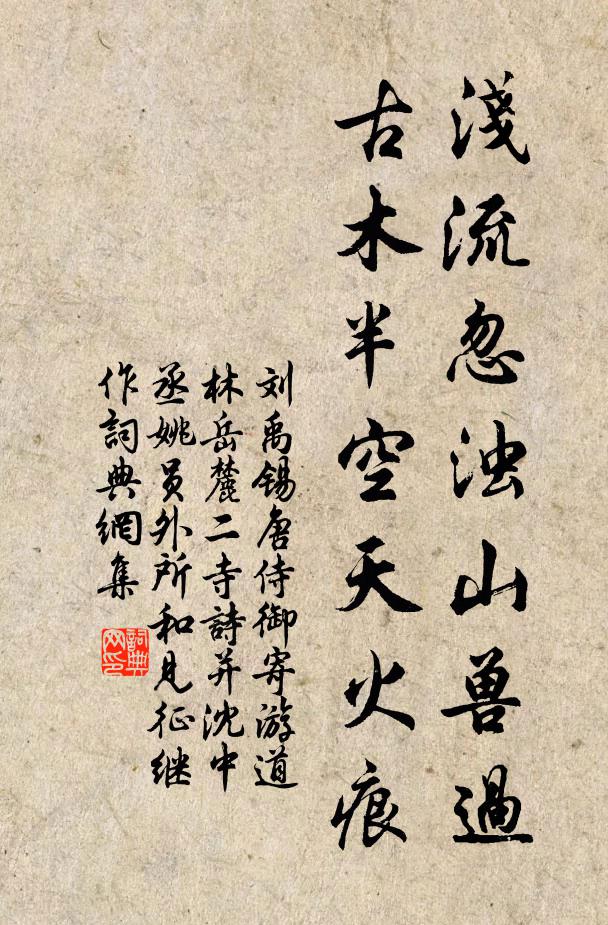 淺流忽浊山兽過
古木半空天火痕
刘禹锡唐侍御寄游道
林岳麓二寺詩并沈中
丞姚员外所和見征继
作詞典網集
詞典
网印